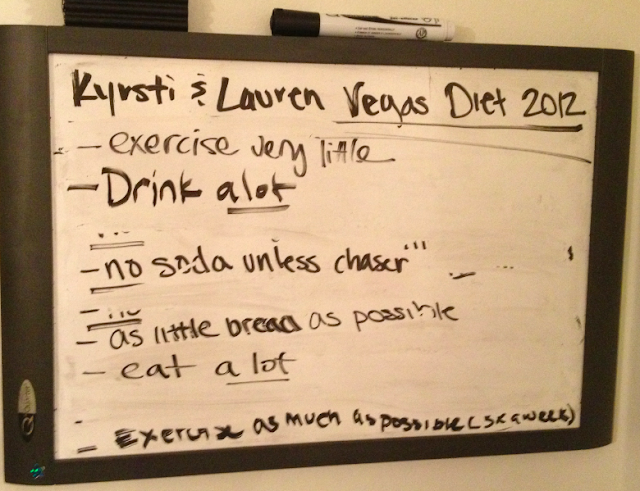 Kyrsti & Lauren Vegas Diet 2012
- exercise very little
- Drink a lot
- no soda unless chaser
- as little bread as possible
- eat a lot
- Exercise as much as possible (5x a week)